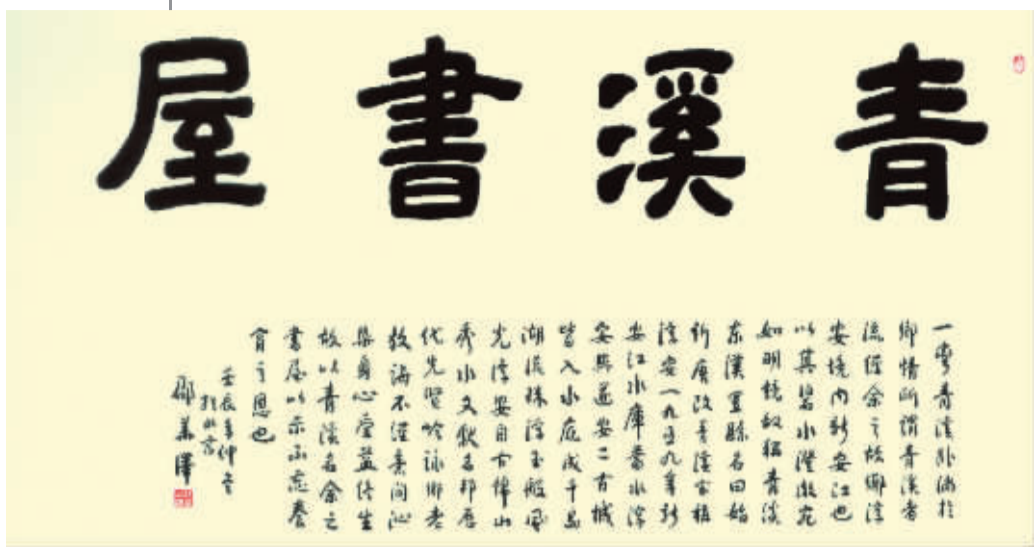 青溪書屋
一彎青溪淌於
鄉情所謂青溪者
流經余之故鄉淳
安境内新安江也
以其碧水澄澈宛
如明鏡故稱青溪
東漢置縣名曰始
新唐改青溪宋稱
淳安一九五九年新
安江水庫蓄水淳
安與遂安二古城
皆入水底成千島
湖珠浮玉般風
光淳安自古稱山
秀水文獻名邦歷
代先賢吟詠鄉老
教誨不經意間沁
染身心受益終生
故以青溪名余之
書屋以示不忘養
育之恩也
壬辰年仲冬
於北京
邵華澤